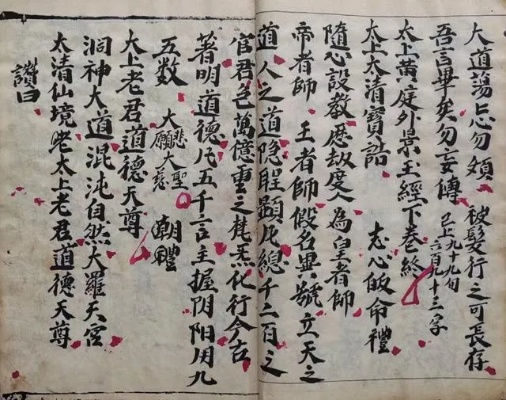 大道蕩〻心勿煩 被髮行之可長存
吾言畢矣勿妄傳 已上九十九句 六百九十三字
太上黃庭外景玉經下卷終
太上太清寶誥 志心皈命禮
隨心設教應劫度人為皇者師
帝者師 王者師假名異號立天之
道人之道隱聖顯凡總千二百之
官君包萬億重之梵炁化行今古
著明道德凡五千言主握阴阳用九
五數 大悲大聖 大願大慈 朝禮
大上老君道德天尊
洞神大道混沌自然大羅天宮
太清仙境老太上老君道德天尊
讚曰